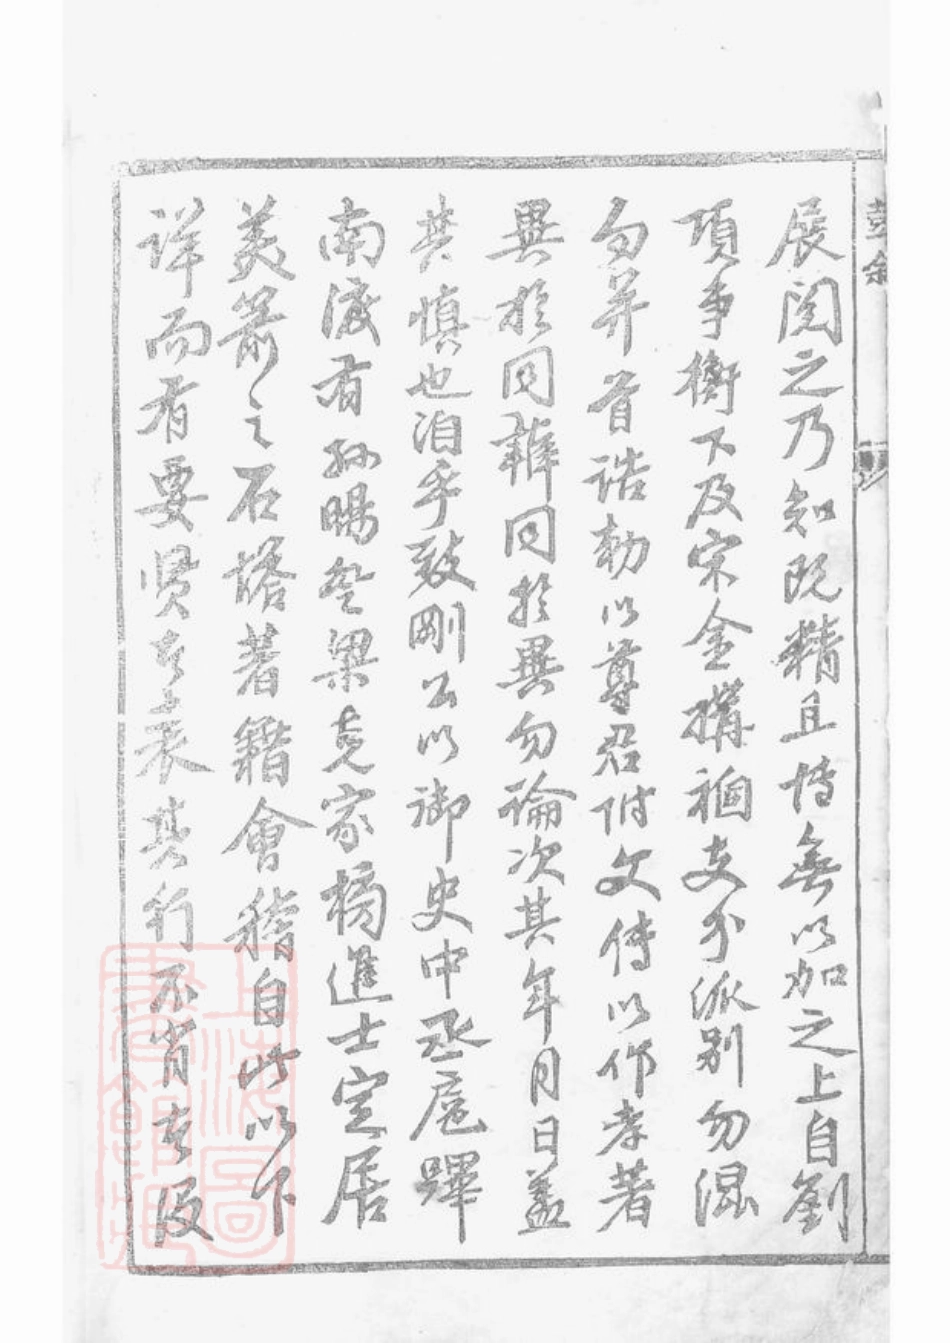 彭敘
展閱之乃知既精且博無以加之上自劉
項事衡下及宋金搆祻支分派別勿混
勿弃首誥勅以尊君附文傳以作孝著
異於同辨同於異勿論次其年月日蓋
其慎也洎乎毅剛公以御史中丞扈蹕
南渡有孫暘登梁克家榜進士定居
美箭之石諮著籍會稽自此以下
详而有要贤者表其行不肖者没
上海圖書館藏